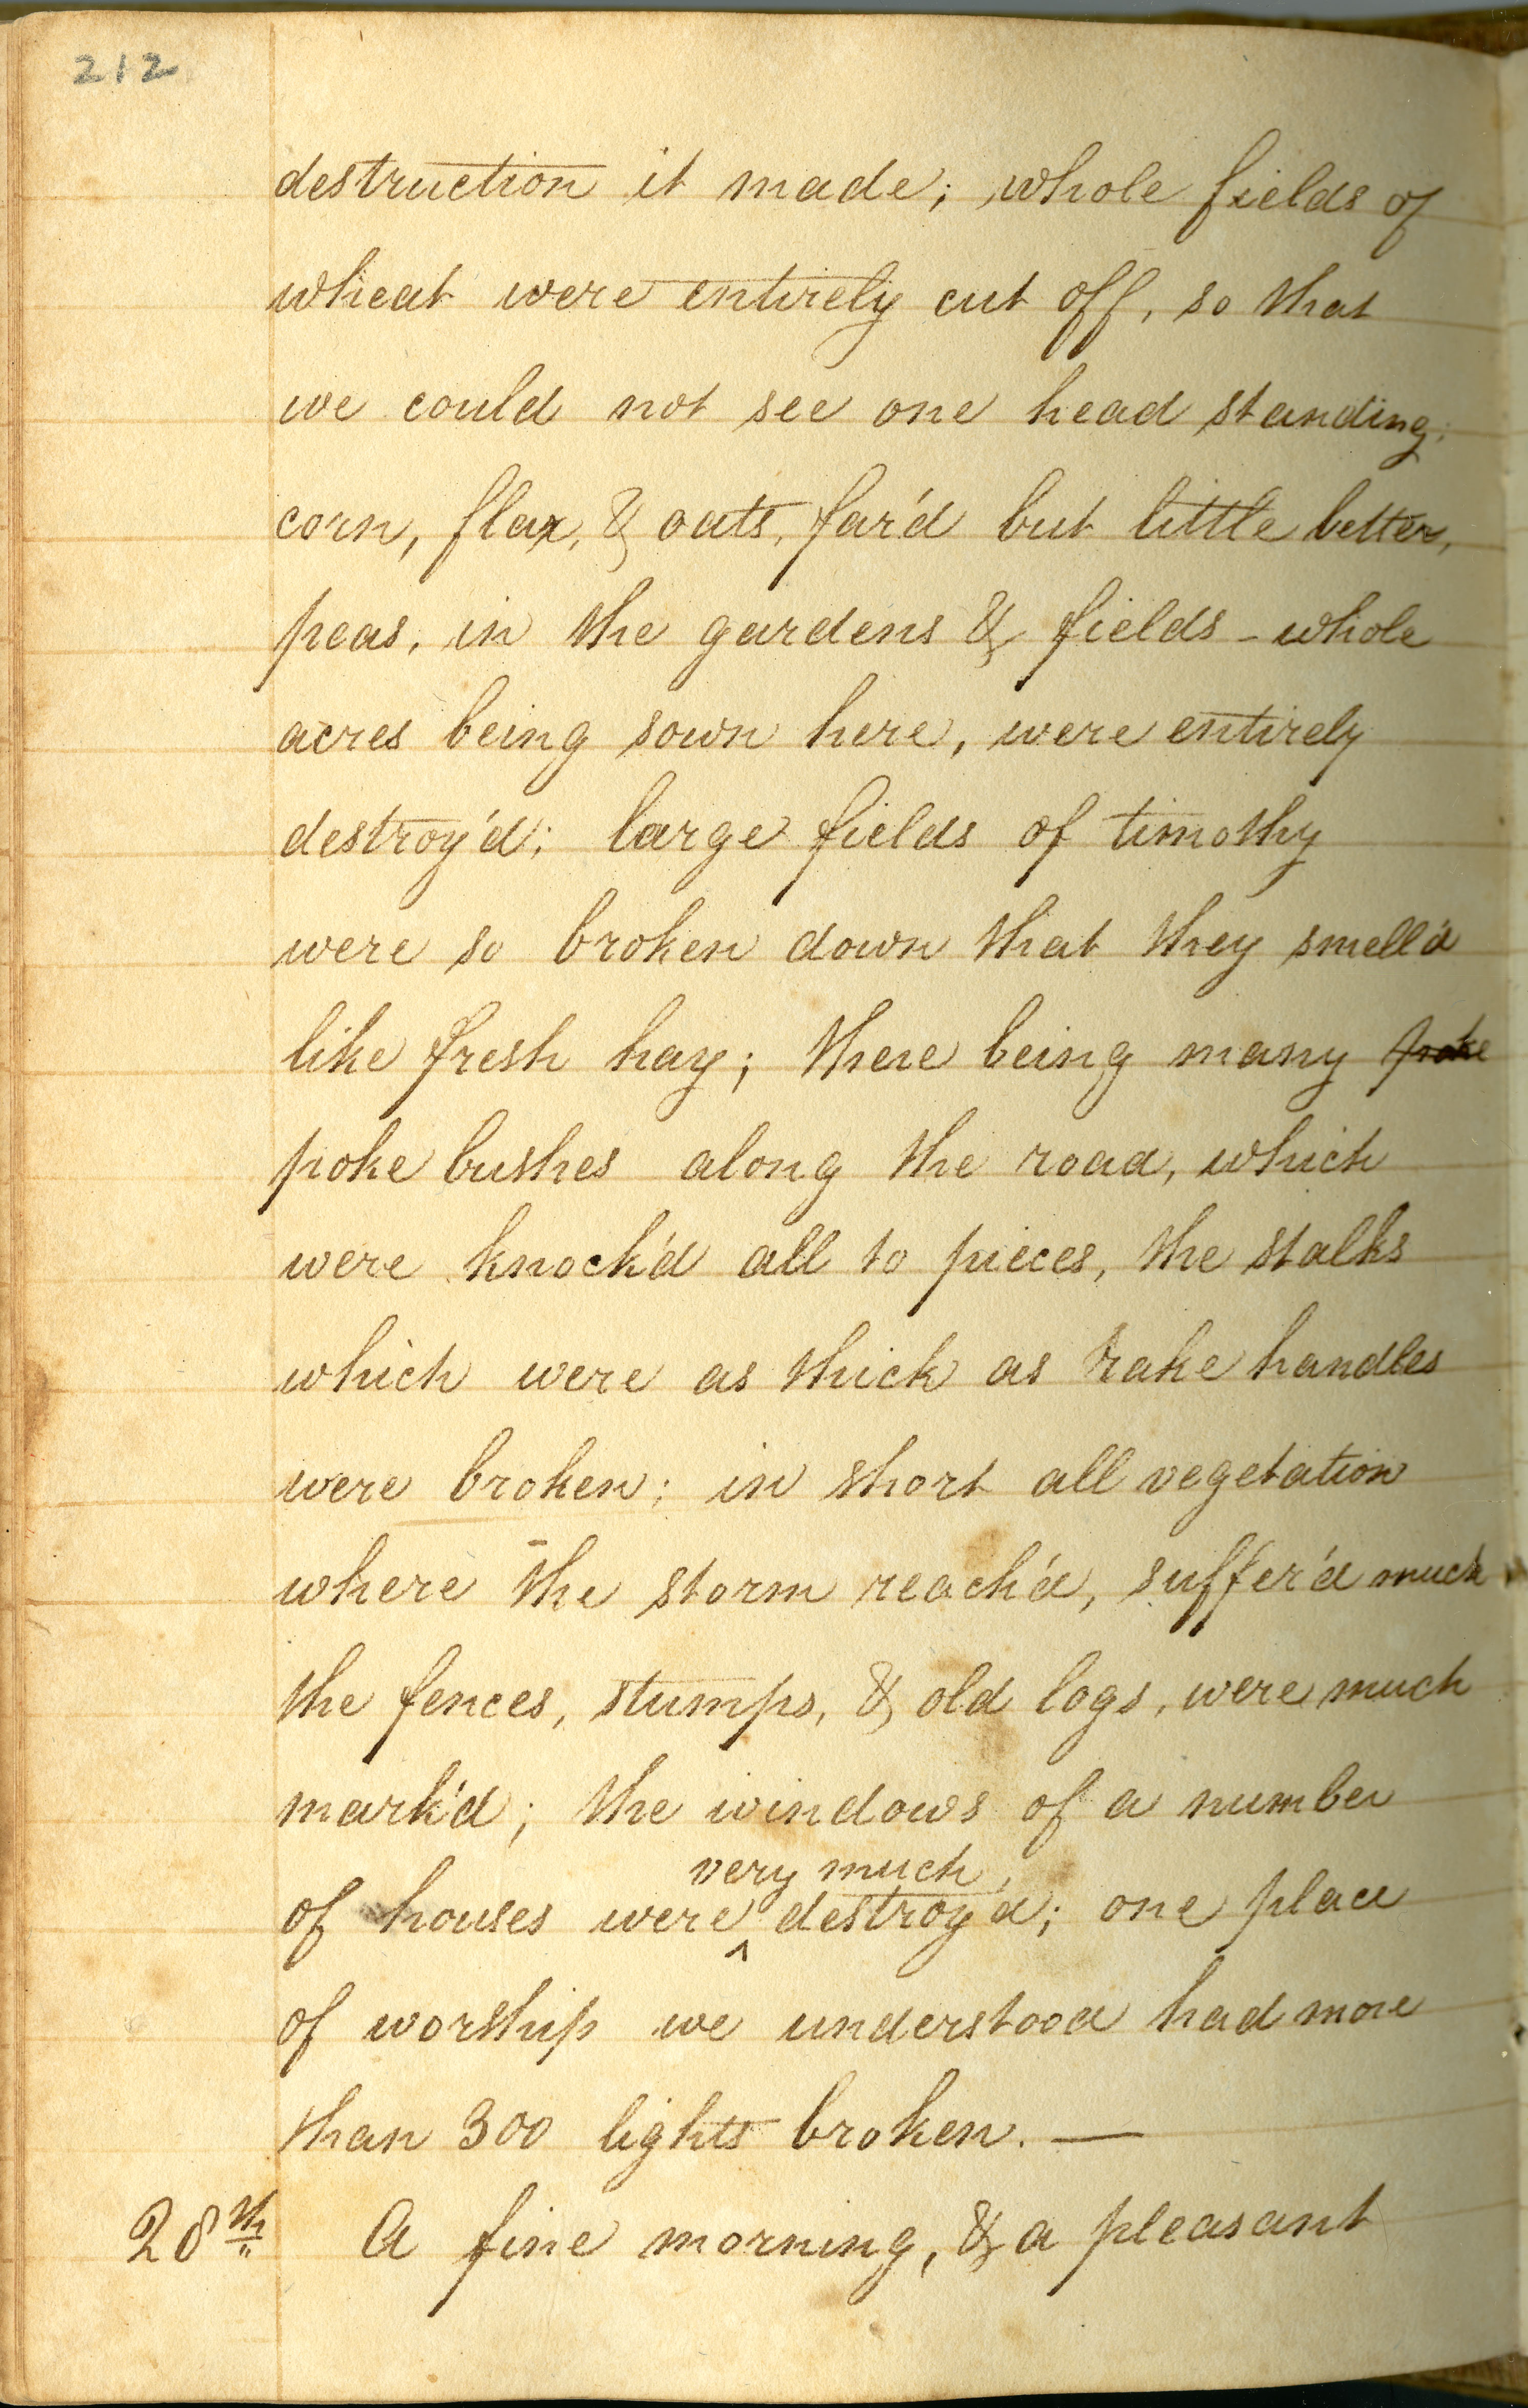 212
destruction it made; whole fields of
wheat were entirely cut off, so that
we could not see one head standing;
corn, flax, & oats, far'd but little better,
peas, in the gardens & fields - whole
acres being sown here, were entirely
destroy'd; large fields of timothy
were so broken down that they smell'd
like fresh hay; there being many poke
poke bushes along the road, which
were knock'd all to pieces, the stalks
which were as thick as rake handles
were broken; in short all vegetation
where the storm reach'd, suffer'd much
the fences, stumps, & old logs, were much
mark'd; the windows of a number
very much
of houses were ^ destroy'd; one place
of worship we understood had more
than 300 lights broken. —
28th A fine morning, & a pleasant